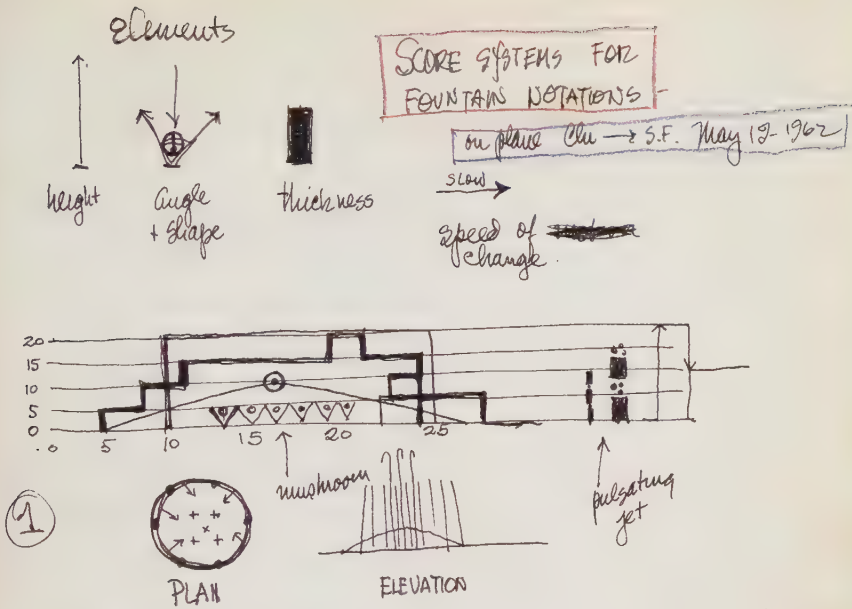 Elements
SCORE SYSTEMS FOR
FOUNTAIN NOTATIONS -
on plane Chi → S.F. May 19-1962
height
angle
+ shape
thickness
SLOW
speed of
change.
20
15
10
5
0
.0 5 10 15 20 25
mushroom
pulsating
jet
1
PLAN
ELEVATION